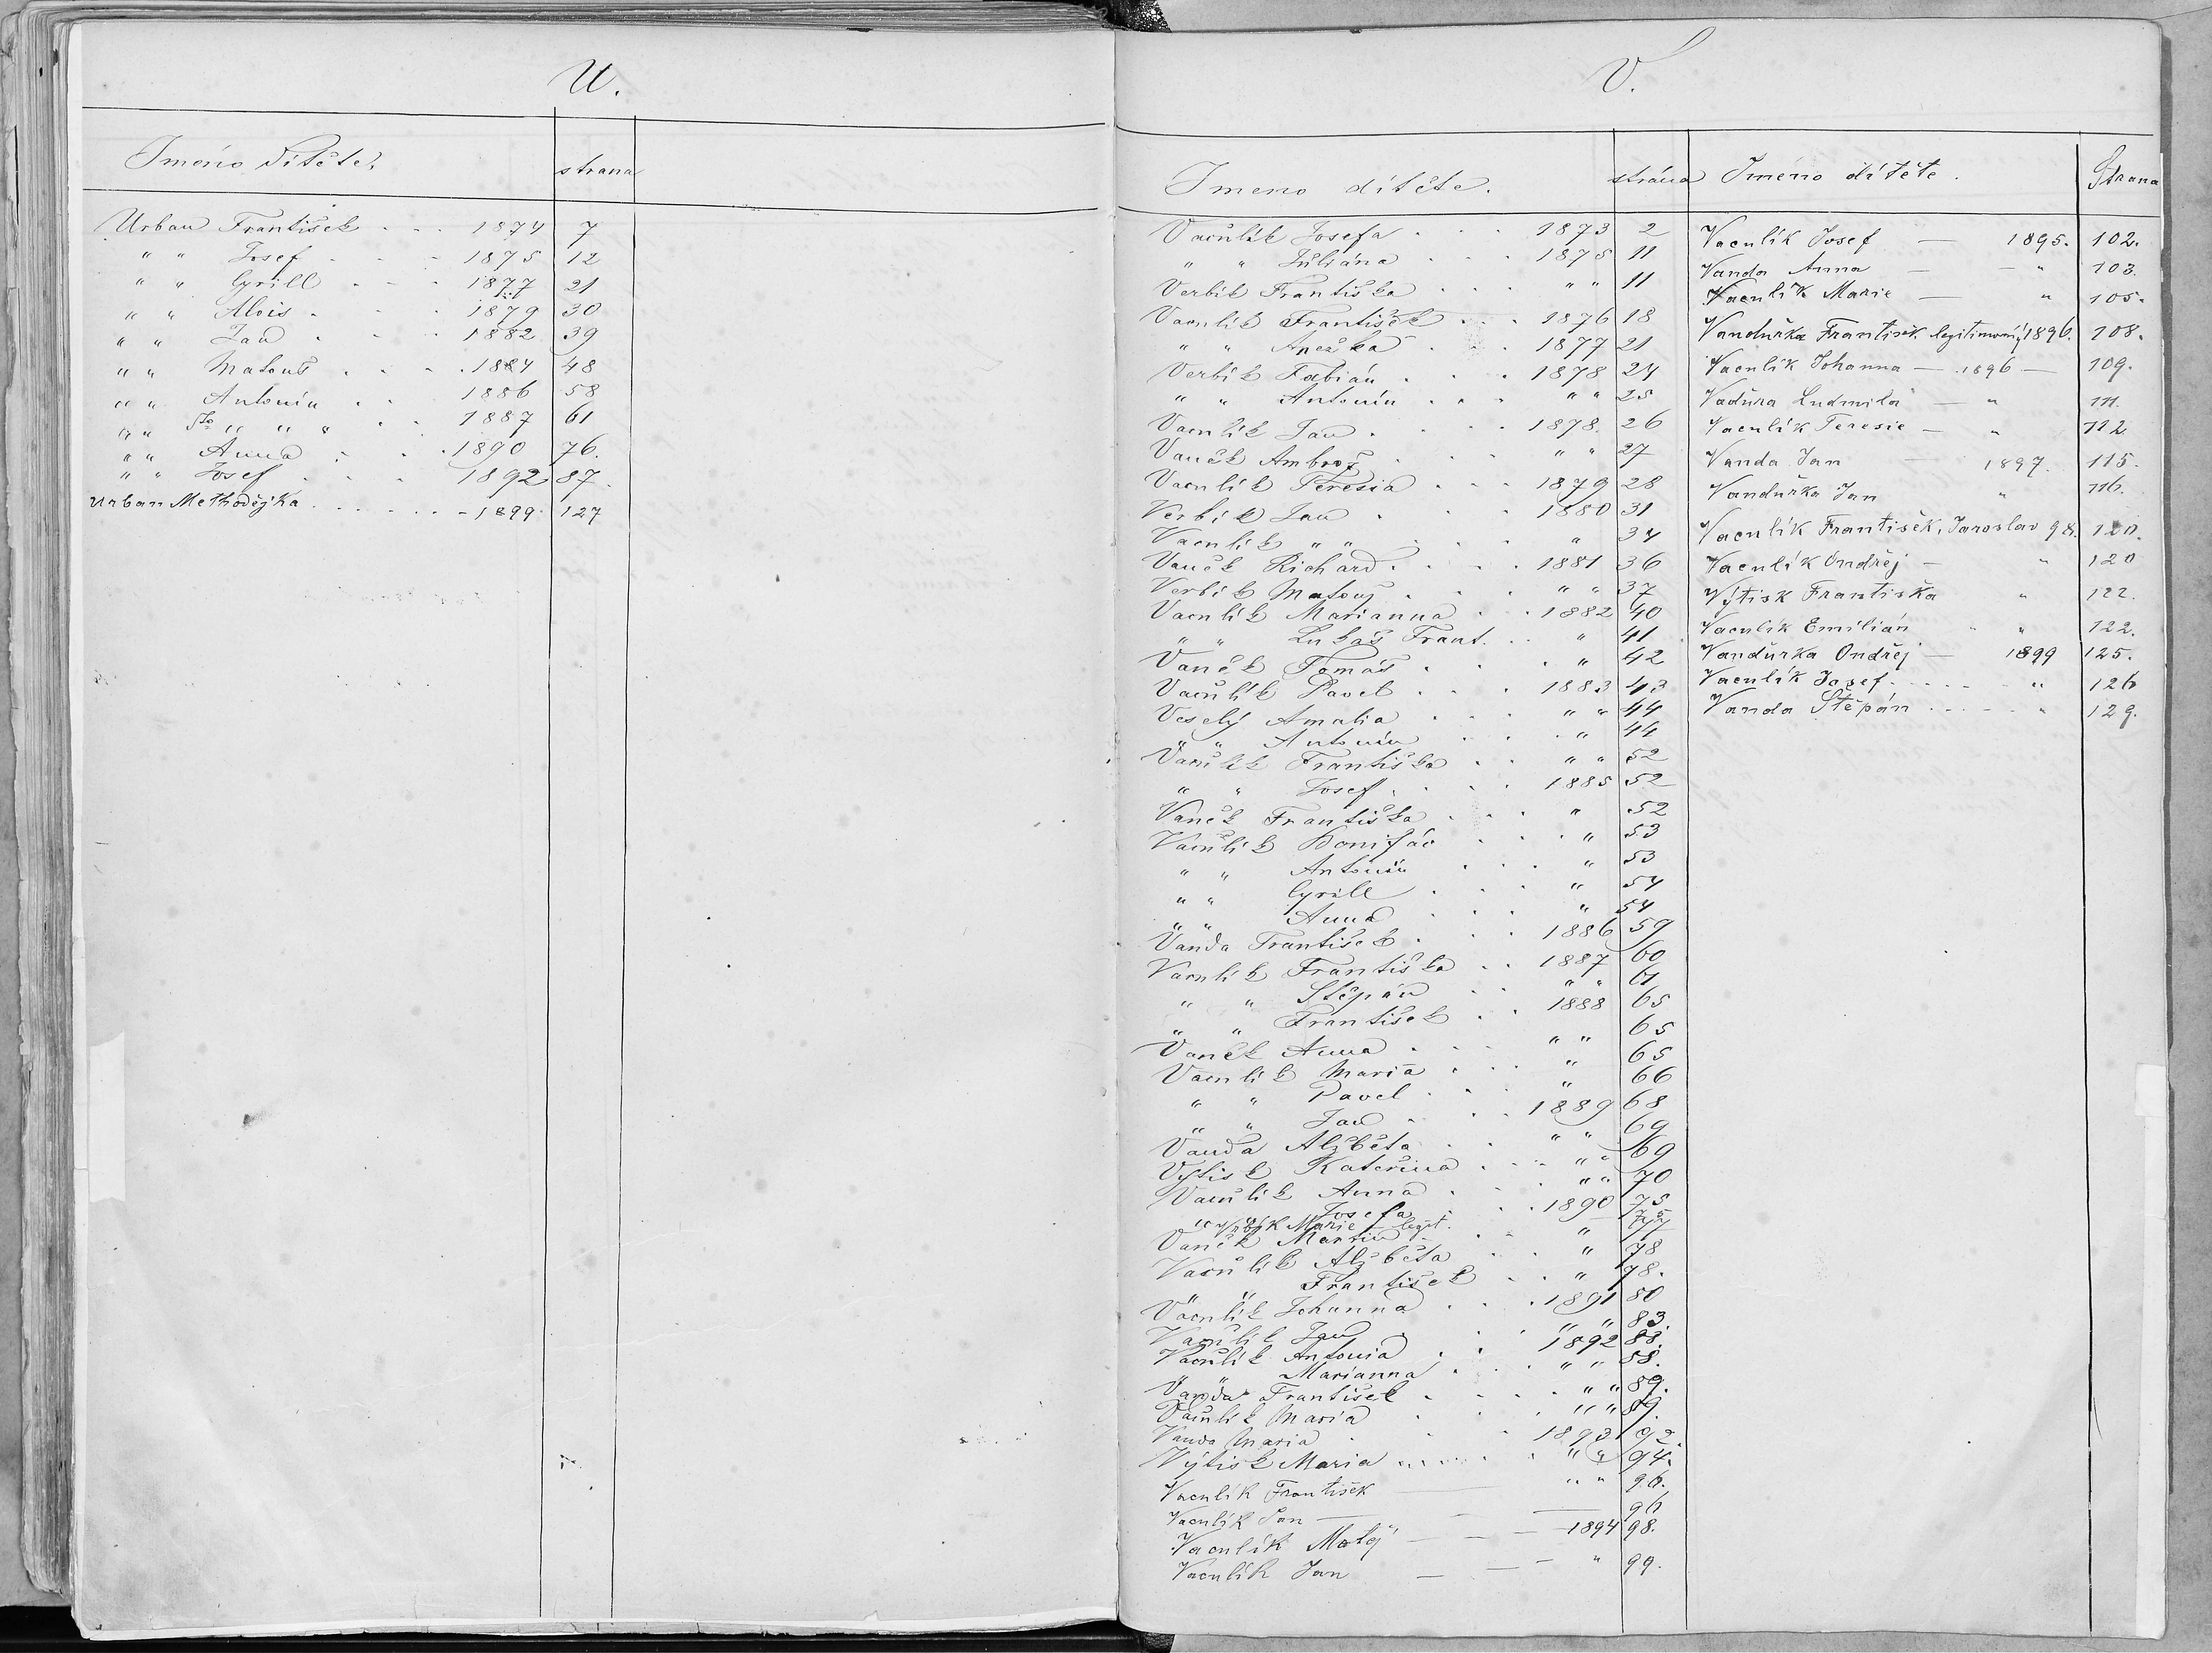 U.
Jméno dítěte. strana
Urban František . . . 1874 7
" " Josef . . . 1875 12
" " Cyrill . . . 1877 21
" " Alois . . . 1879 30
" " Jan . . . 1882 39
" " Matouš . . . 1884 48
" " Antonín . . . 1886 58
" " " " " . . 1887 61
" " Anna . . . 1890 76.
" " Josef . . . 1892 87.
Urban Methodějka . . . . . . - 1899 127
V.
Jmeno dítěte. strána
Vaculík Josefa . . . 1873 2
" " Juliána . . . 1875 11
Verbík Františka . . . " " 11
Vaculík František . . . 1876 18
" " Anežka . . . 1877 21
Verbík Fabián . . . 1878 24
" " Antonín . . . " " 25
Vaculík Jan . . . 1878. 26
Vaněk Ambrož . . . " " 27
Vaculík Teresia . . . 1879 28
Verbík Jan . . . 1880 31
Vaculík " " . . . " 34
Vaněk Richard . . . 1881 36
Verbík Matouš . . . " " 37
Vaculík Marianna . . 1882 40
" " Lukáš Frant. . . " 41
Vaněk Tomáš . . . " 42
Vaculík Pavel . . . 1883 43
Veselý Amalia . . . " " 44
" " Antonín . . . " 44
Vaculík Františka . . " " 52
" " Josef . . . 1885 52
Vaněk Františka . . . " 52
Vaculík Bonifác . . . " 53
" " Antonín . . . " 53
" " Cyrill . . . " 54
" " Anna . . . " 54
Vanda František . . . 1886 59
Vaculík Františka . . 1887 60
" " Štěpán . . " " 61
" " František . . 1888 65
Vaněk Anna . . . " " 65
Vaculík Maria . . . " 65
" " Pavel . . . " 66
" " Jan . . . 1889 68
Vanda Alžběta . . " " 69
Výtisk Kateřina . . . " " 69
Vaculík Anna . . . " " 70
" " Josefa . . . 1890 75
Marie legit. 75
Vaněk Martin . . . " 77
Vaculík Alžběta . . " 78
" František . . " 78.
Vaculík Johanna . . . 1891 80
Vaculík Jan . . . " " 83.
Vaculík Antonia . . 1892 88.
" " Marianna . . . " " 88.
Vanda František . . . " " 89.
Vaculík Maria . . . " " 89.
Vanda Maria . . . 1893 92.
Výtisk Maria . . . " " 94.
Vaculík František — " " 96.
Vaculík Jan — — 96
Vaculík Matěj — — 1894 98.
Vaculík Jan — — — " 99.
Jméno dítěte. Strana
Vaculík Josef — 1895. 102.
Vanda Anna — — " 103.
Vaculík Marie — " 105.
Vandurka František legitimovaný 1896. 108.
Vaculík Johanna — 1896 — 109.
Vaďura Ludmila — " 111.
Vaculík Teresie — " 112.
Vanda Jan — 1897. 115.
Vandurka Jan " 116.
Vaculík František, Jaroslav 98. 120.
Vaculík Ondřej — " 120
Výtisk Františka " 122.
Vaculík Emilián " 122.
Vandurka Ondřej — 1899 125.
Vaculík Josef . . . . " 126
Vanda Štěpán . . . . " 129.